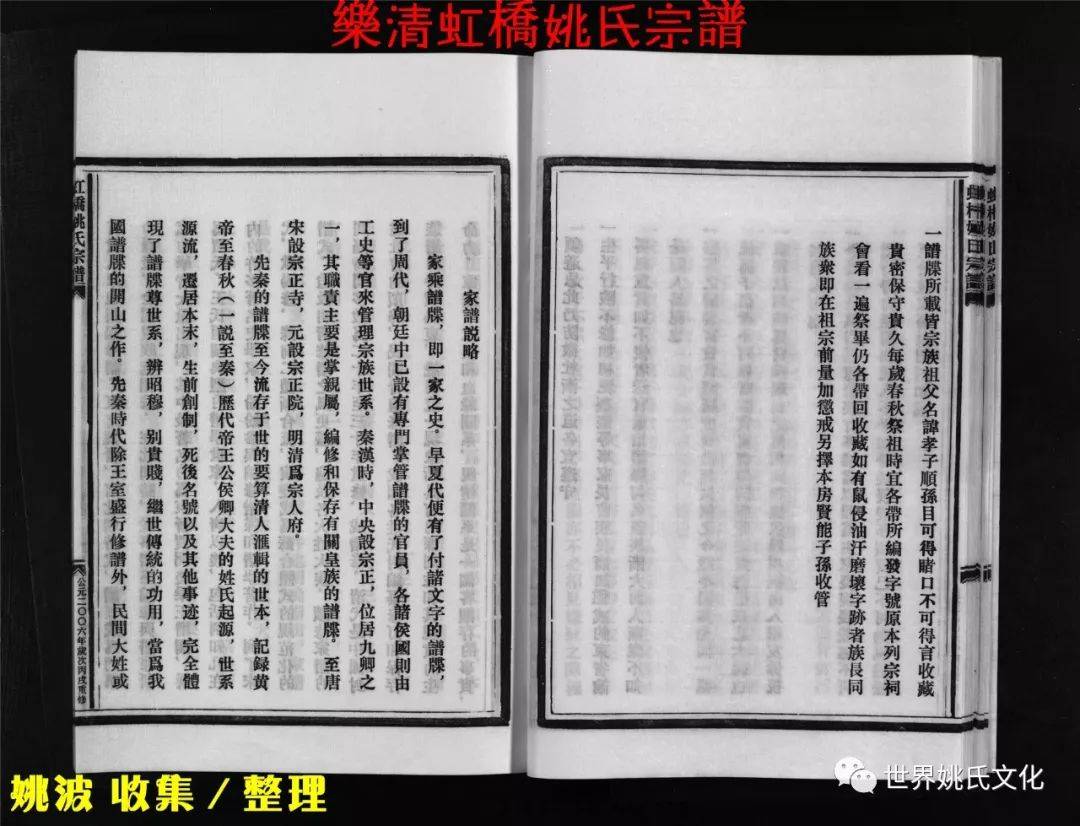 樂清虹橋姚氏宗譜
一譜牒所載皆宗族祖父名諱孝子順孫目可得睹口不可得言收藏
貴密保守貴久每歲春秋祭祖時宜各帶所編發字號原本列宗祠
會看一遍祭畢仍各帶回收藏如有鼠侵油汙磨壞字跡者族長同
族衆即在祖宗前量加懲戒另擇本房賢能子孫收管
家譜説略
家乘譜牒，即一家之史。早夏代便有了付諸文字的譜牒，
到了周代，朝廷中已設有專門掌管譜牒的官員，各諸侯國則由
工史等官來管理宗族世系。秦漢時，中央設宗正，位居九卿之
一，其職責主要是掌親屬，編修和保存有關皇族的譜牒。至唐
宋設宗正寺，元設宗正院，明清爲宗人府。
先秦的譜牒至今流存于世的要算清人滙輯的世本，記録黄
帝至春秋（一説至秦）歷代帝王公侯卿大夫的姓氏起源，世系
源流，遷居本末，生前創制，死後名號以及其他事迹，完全體
現了譜牒尊世系，辨昭穆，别貴賤，繼世傳統的功用，當爲我
國譜牒的開山之作。先秦時代除王室盛行修譜外，民間大姓或
虹橋姚氏宗譜
公元二〇〇六年歲次丙戌重修
姚波 收集 / 整理
世界姚氏文化